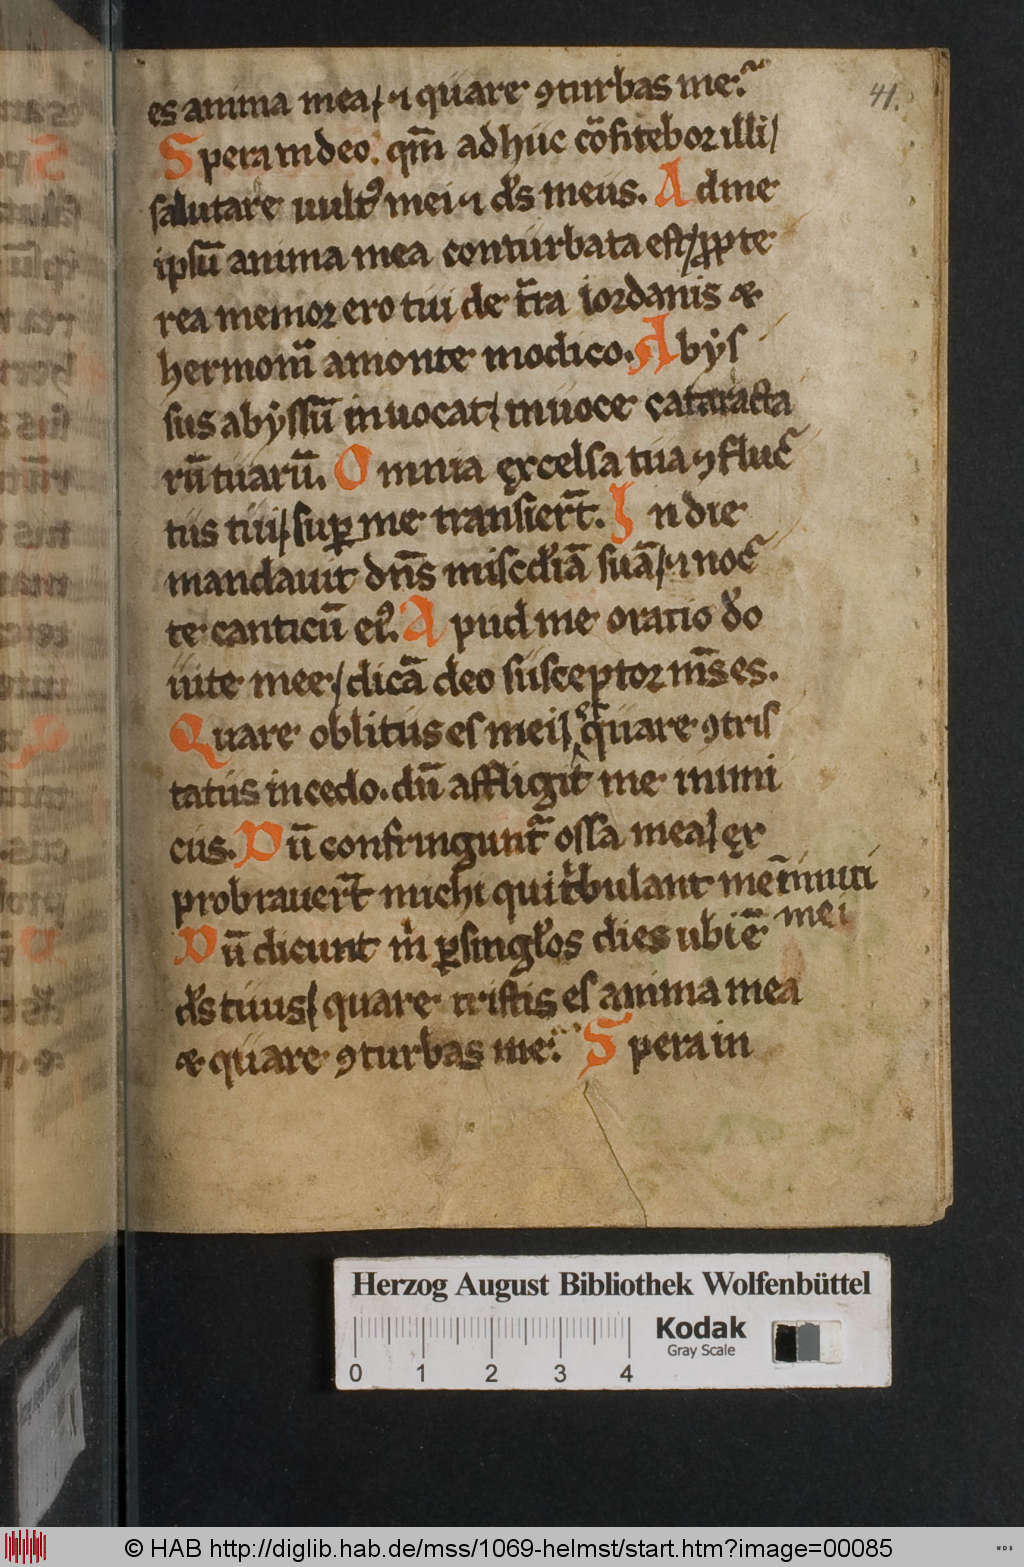 es anima mea / ⁊ quare ꝯturbas me.
41.
Spera in deo. qm̄ adhuc cōfitebor illi /
salutare uultꝰ mei ⁊ ds̄ meus. Ad me
ipsū anima mea conturbata est / ꝓpte
rea memor ero tui de tr̄a iordanis &
hermonii a monte modico. Abys
sus abyssū inuocat / in uoce cataracta
rū tuarū. Omnia ęxcelsa tua ⁊ fluc
tus tui / suꝑ me transier̄t. In die
mandauit dn̄s miscd̓iā suā / ⁊ noc
te canticū eiꝰ. Apud me oratio d̓o
uite mee / dicā deo susceptor ms̄ es.
Quare oblitus es mei / et quare ꝯtris
tatus incedo. dū affligit me inimi
cus. Dū confringunt̄ ossa mea / ex
probrauer̄t michi qui t̓bulant me īnimici
mei
Dū dicunt m̓ ꝑ singl̓os dies ubi ē
ds̄ tuus / quare tristis es anima mea
& quare ꝯturbas me. Spera in
Herzog August Bibliothek Wolfenbüttel
Kodak
Gray Scale
0 1 2 3 4
© HAB http://diglib.hab.de/mss/1069-helmst/start.htm?image=00085